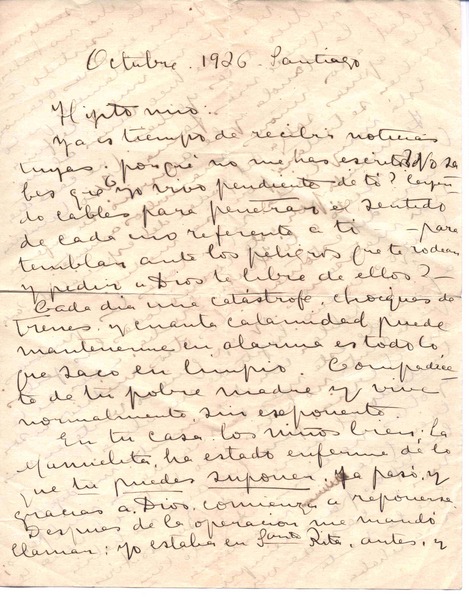 Octubre. 1926. Santiago
Hijito mio:
Ya es tiempo de recibir noticias
tuyas. porqué no me has escrito? No sa-
bes que yo vivo pendiente de tí? leyen-
do cables para penetrar el sentido
de cada uno referente a ti - para
temblar ante los peligros que te rodean
y pedir a Dios te libre de ellos? -
Cada dia una catástrofe, choques de
trenes, y cuanta calamidad puede
mantenerme en alarma es todo lo
que saco en limpio. Compadéce-
te de tu pobre madre y vive
normalmente sin exponerte.
En tu casa los niños bien; la
Manuelita, ha estado enferma de lo
que tu puedes suponer, ya pasó, y
gracias a Dios, comienza a reponerse.
Despues de la operacion me mandó
llamar; yo estaba en Santa Rita, antes, y